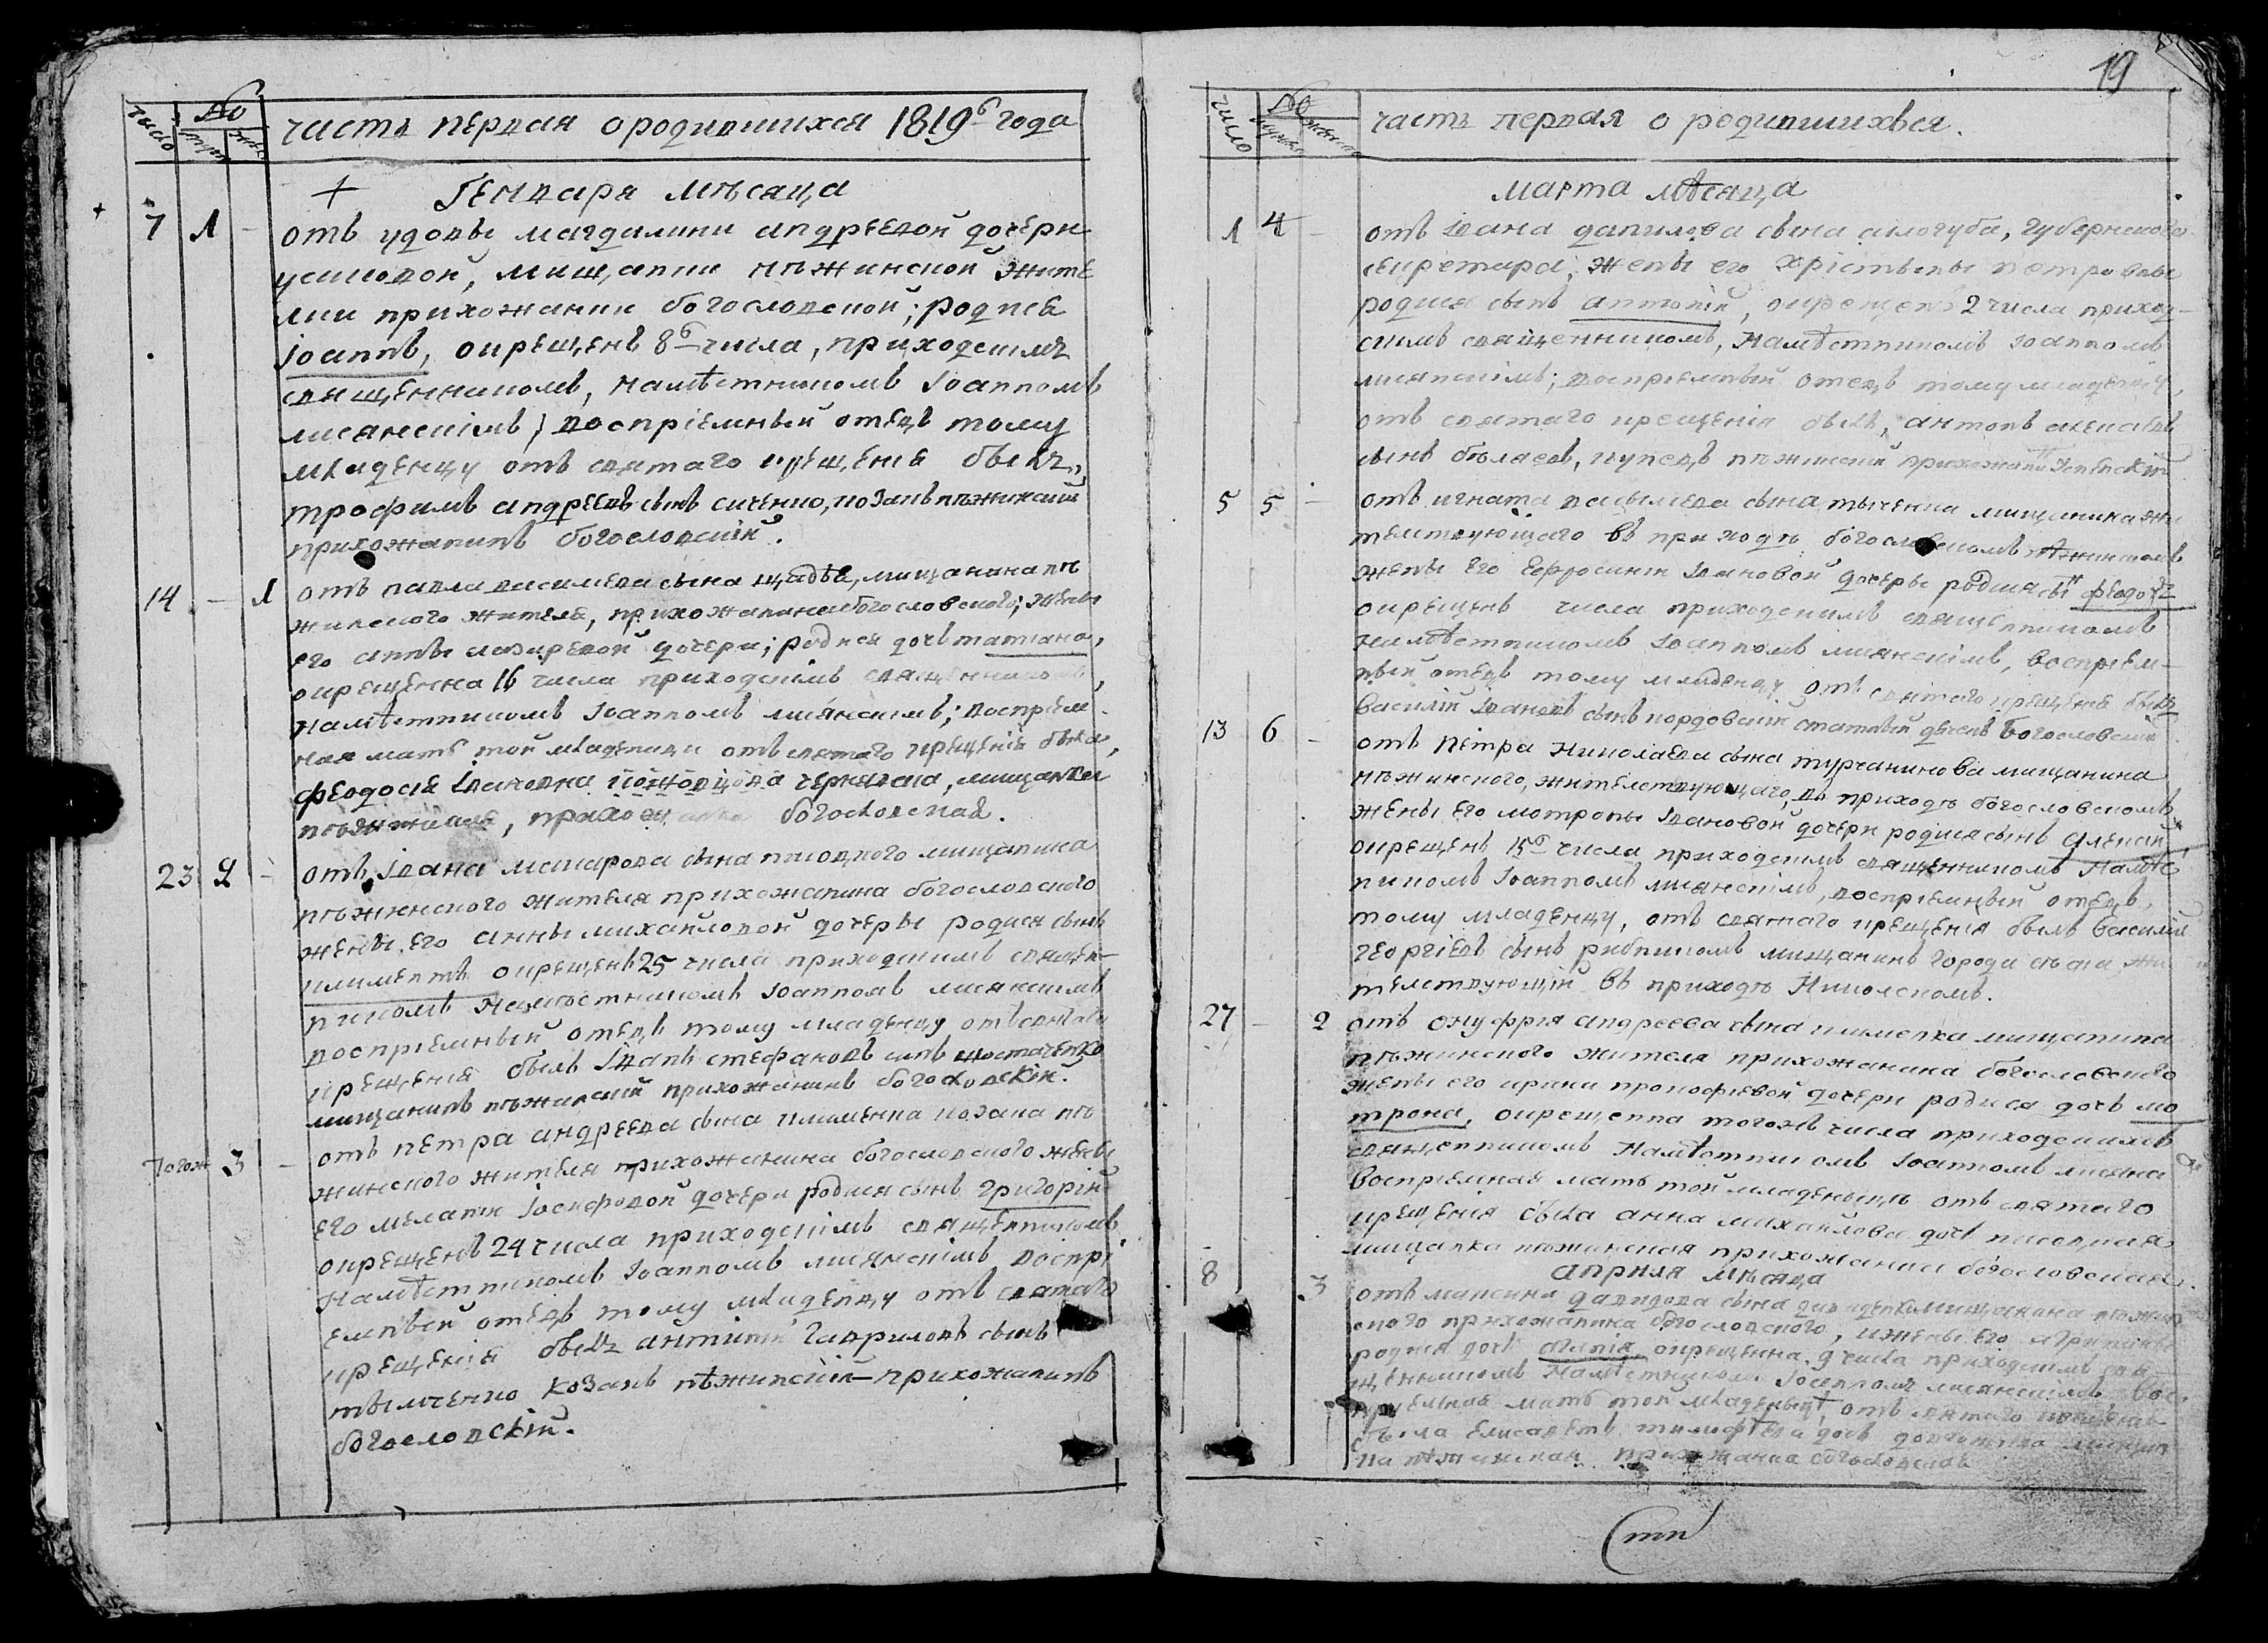 число № муж жен
часть первая о родившихся 1819б года
Генваря мѣсяца
7 1 - отъ удовы магдалини андреевой дочери
мищанки нѣжинской жите
лки прихожанки богословской; родися
Іоаннъ, окрещенъ 8б числа, приходскимъ
священникомъ, намѣстникомъ Іоанномъ
лисянскімъ, воспріемный отецъ тому
младенцу отъ святаго крещенія былъ
трофимъ андреевъ сынъ козакъ нѣжинский
прихожанинъ богословскій.
14 - 1 отъ павла василева сына мищанина нѣ
жинского жителя, прихожанина богословского; жены
его анны лазаревой дочери; родися дочь татиана,
окрещенна 16 числа приходскімъ священникомъ,
намѣстникомъ Іоанномъ лисянскимъ; воспріем
ная мать той младеницы отъ святаго крещенія была,
феодосія Івановна мищанка
нѣжинская, богословская.
23 2 - отъ Івана макарова сына мищанина
нѣжинского жителя прихожанина богословского
жены его анны михайловой дочеры родися сынъ
климентъ окрещенъ 25 числа приходскимъ священ-
никомъ Намѣстникомъ Іоанномъ лисянскимъ
воспріемный отецъ тому младенцу отъ святаго
крещенія былъ Іванъ стефановъ сынъ шостаченко
мищанинъ нѣжинский прихожанинъ богословскій.
тогож 3 - отъ петра андреева сына клименка козака нѣ
жинского жителя прихожанина богословского жены
его мелании Іосифовой дочери родися сынъ григорій
окрещенъ 24 числа приходскімъ священникомъ
Намѣстникомъ Іоанномъ лисянскімъ воспрі
емный отецъ тому младенцу отъ святаго
крещенія былъ антипий гавриловъ сынъ
козакъ нѣжинскій прихожанинъ
богословскій.
19
число № мужеска женска
часть первая о родившихъся.
марта мѣсяца
1 4 - отъ Івана данилова сына губернского
секретара, жены его Хрістыны петровны
родися сынъ антоній, окрещенъ 2 числа приход-
скимъ священникомъ, Намѣстникомъ Іоанномъ
лисянскімъ; воспріемный отецъ тому младенцу,
отъ святаго крещенія былъ, антонъ алексіевъ
сынъ бѣлаевъ, купецъ нѣжинский
5 5 - отъ игната василева сына мищанина жи
телствующаго въ приходѣ богословскомъ нѣжинскомъ
жены его Ефросинии Івановой дочеры родися сынъ федоръ
окрещенъ числа приходскимъ священникомъ
намѣстникомъ Іоанномъ лисянскімъ, воспріем-
ный отецъ тому младенцу отъ святаго крещенія былъ
василій Івановъ сынъ
13 6 - отъ Петра Николаева сына турчанинова мищанина
нѣжинского, жителствующаго, въ приходѣ богословскомъ,
жены его мотроны Івановой дочери родися сынъ Алексій
окрещенъ 15б числа приходскимъ священникомъ Намѣст
никомъ Іоанномъ лисянскімъ, воспріемный отецъ,
тому младенцу, отъ святаго крещенія былъ василій
георгіевъ сынъ мищанинъ города жи
телствующій въ приходѣ Николскомъ.
27 - 2 отъ онуфрія андреева сына клименка мищанина
нѣжинского жителя прихожанина богословского
жены его ирины прокофиевой дочери родися дочь мо
трона, окрещенна тогожъ числа приходскимъ
священникомъ Намѣстникомъ Іоанномъ лисянски
воспріемная мать той младеницѣ отъ святаго
крещенія была анна михайлова дочь
мищанка нѣжинская прихожанка богословская.
априля мѣсяца
8 3 отъ максима давидова сына мищанина нѣжин
ского прихожанина богословского, жены его агрипины
родися дочь окрещенна 9 числа приходскимъ свя
щенникомъ Намѣстникомъ Іоанномъ лисянскімъ вос
пріемная мать той младеницѣ, отъ святаго крещенія
была елисаветъ дочь
нѣжинская прихожанка богословская